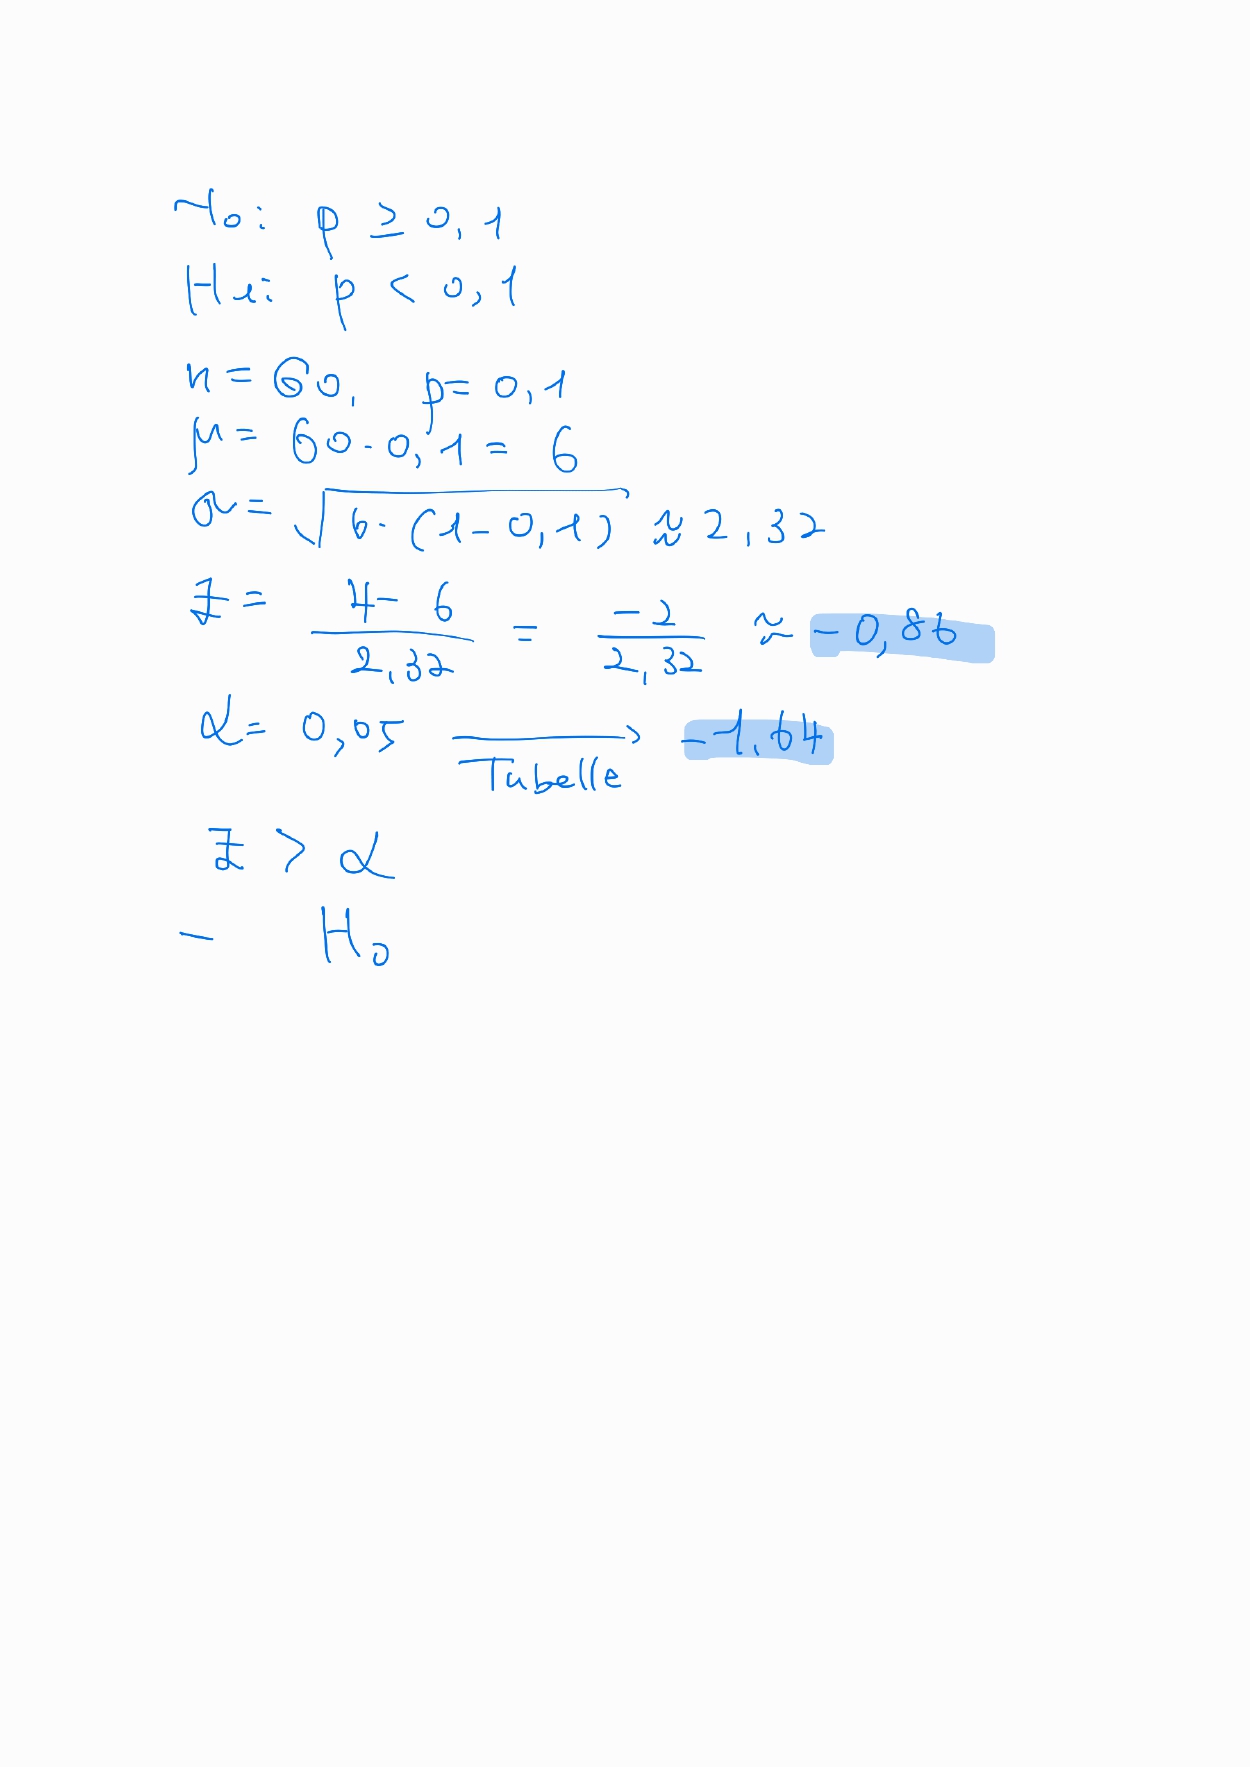 H₀: p ≥ 0,1
H₁: p < 0,1
n = 60, p = 0,1
μ = 60 · 0,1 = 6
σ = √6 · (1 - 0,1) ≈ 2,32
Z = 4 - 6 / 2,32 = -2 / 2,32 ≈ -0,86
α = 0,05 → Tabelle -1,64
Z > α
- H₀